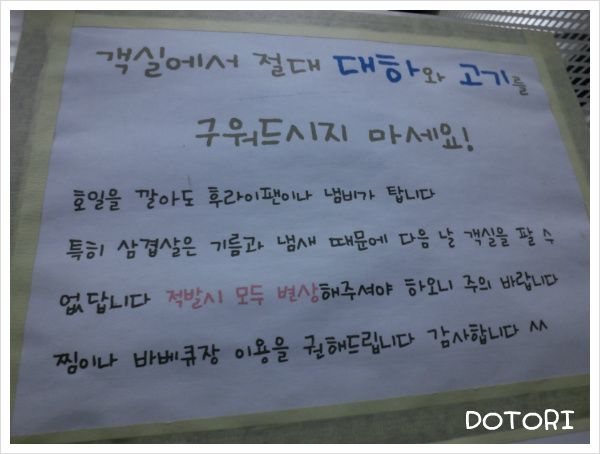 객실에서 절대 대하와 고기를
구워드시지 마세요!
호일을 깔아도 후라이팬이나 냄비가 탑니다
특히 삼겹살은 기름과 냄새 때문에 다음 날 객실을 팔 수
없답니다 적발시 모두 변상해주셔야 하오니 주의 바랍니다
찜이나 바베큐장 이용을 권해드립니다 감사합니다 ^^
DOTORI